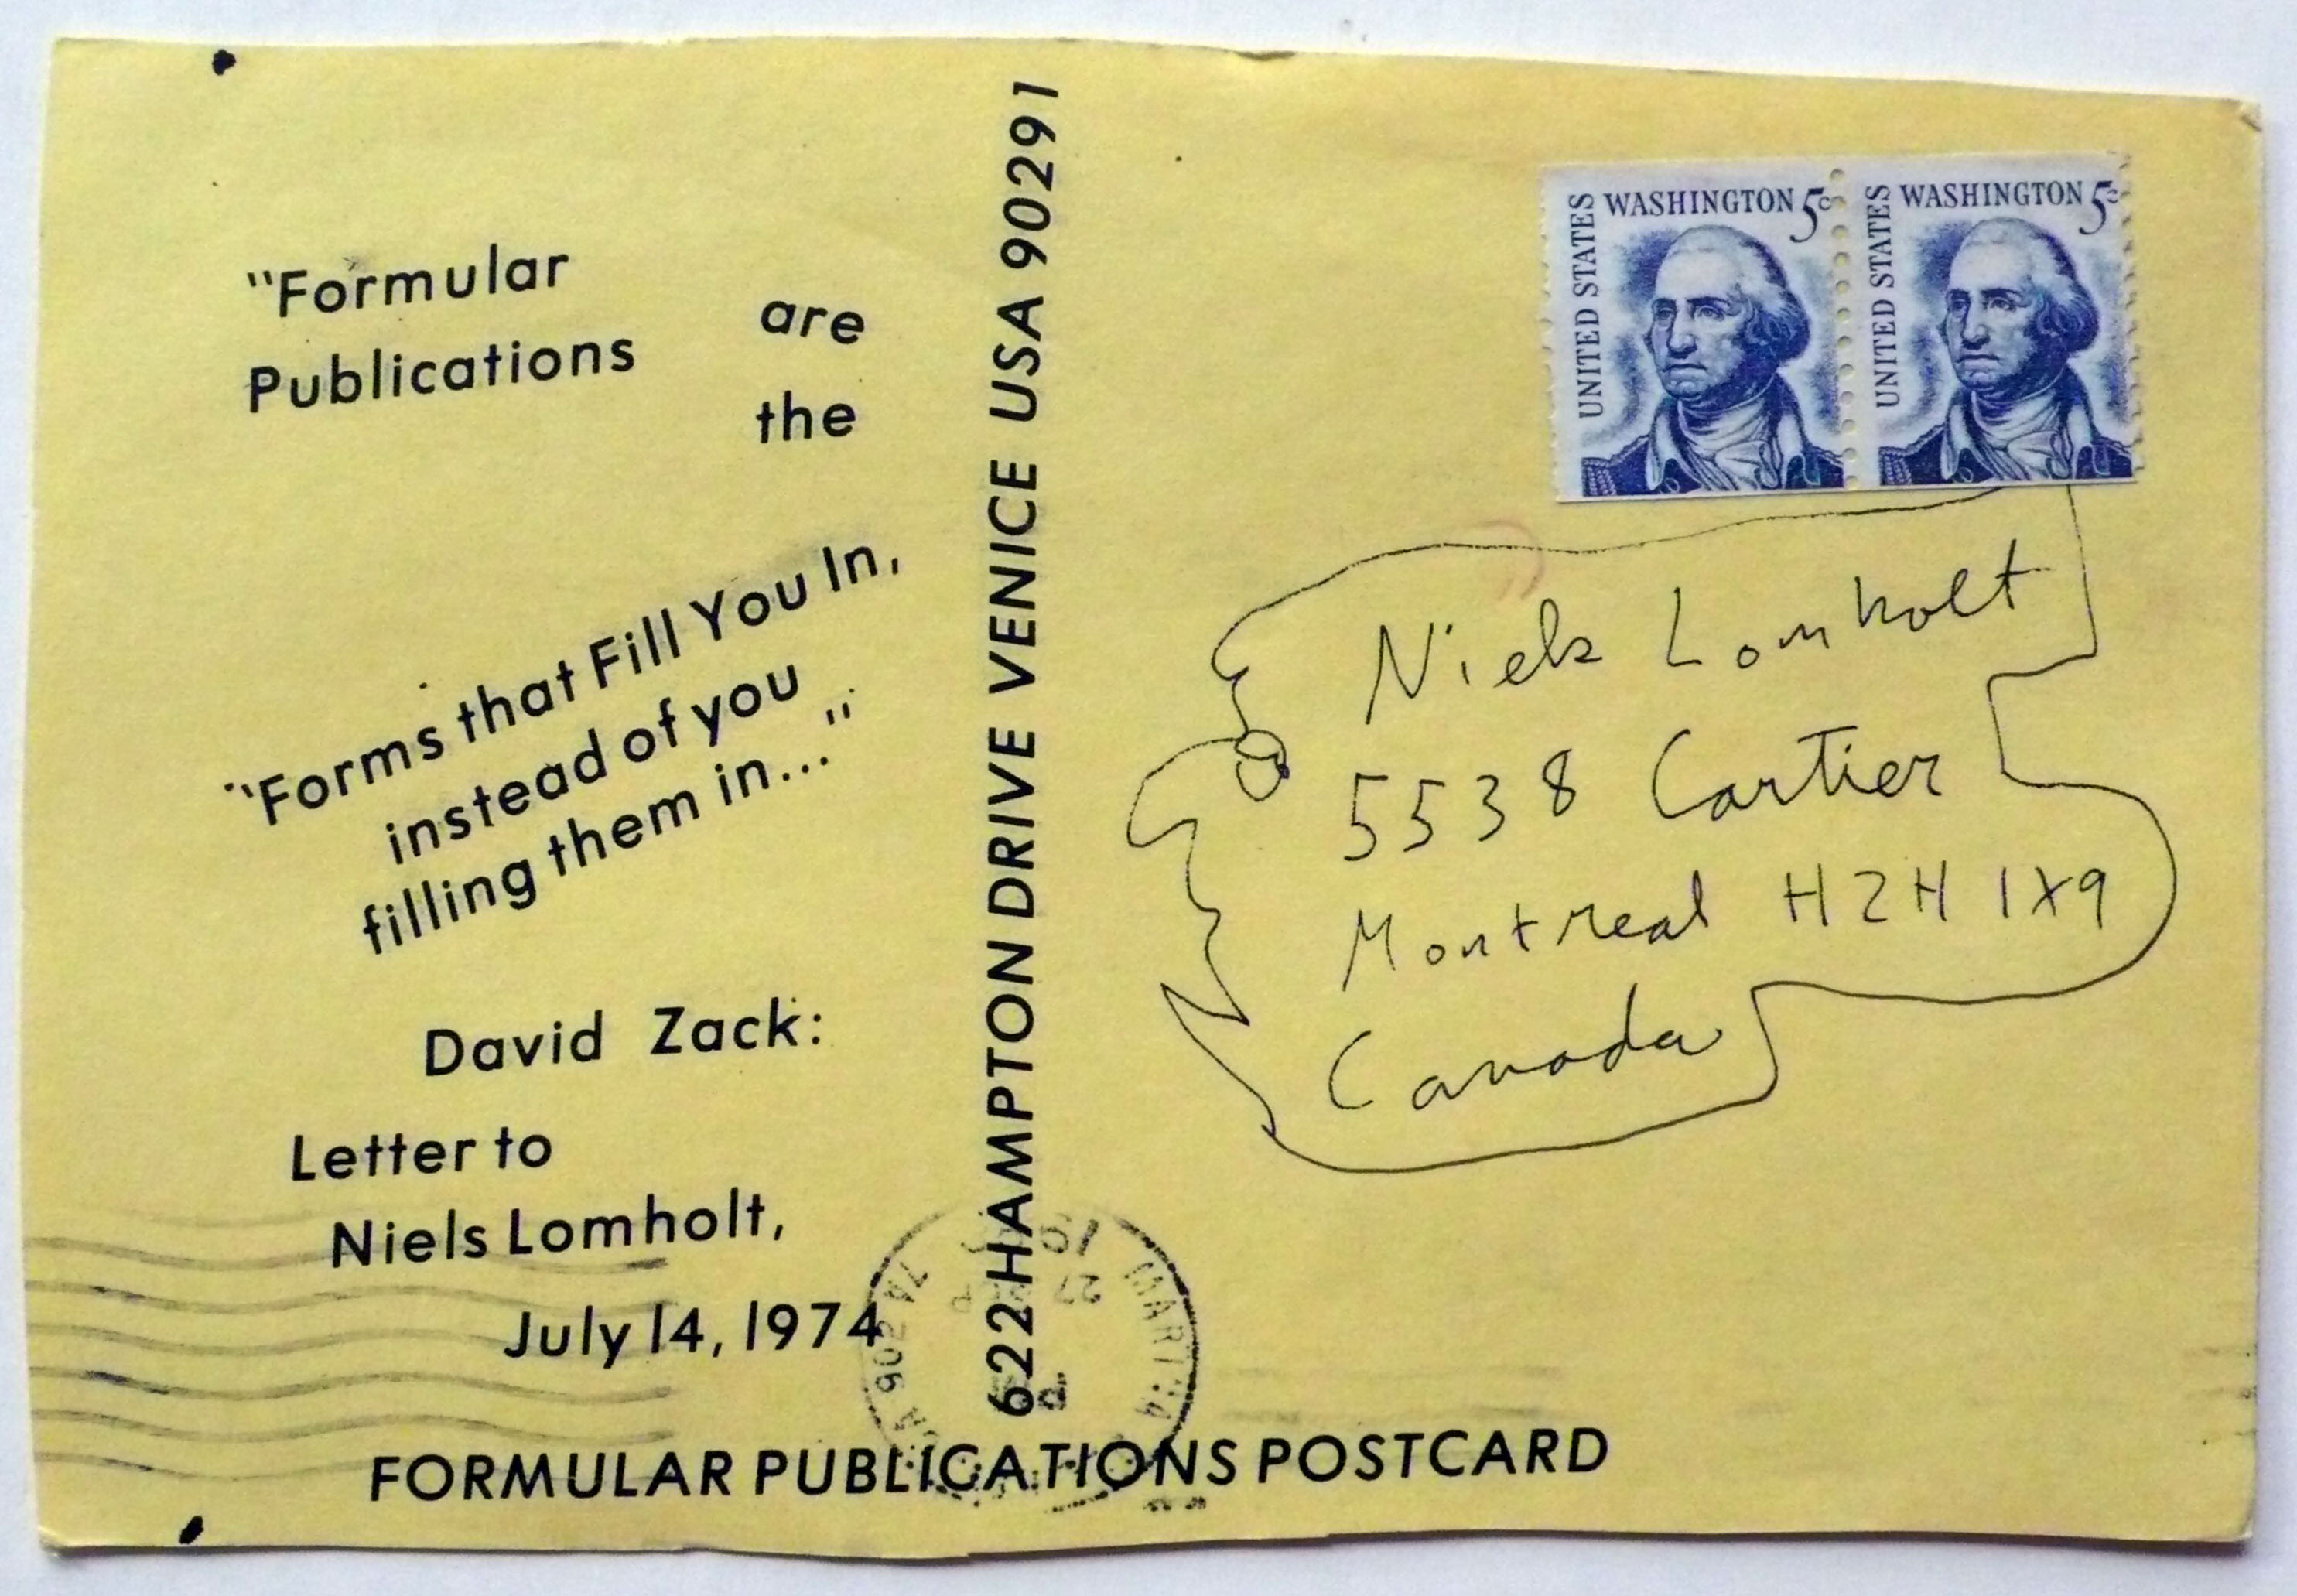 "Formular
Publications
are
the
"Forms that Fill You In,
instead of you
filling them in..."
David Zack:
Letter to
Niels Lomholt,
July 14, 1974
FORMULAR PUBLICATIONS POSTCARD
622 HAMPTON DRIVE VENICE USA 90291
UNITED STATES
WASHINGTON 5c
UNITED STATES
WASHINGTON 5c
Niels Lomholt
5538 Cartier
Montreal H2H 1X9
Canada
27